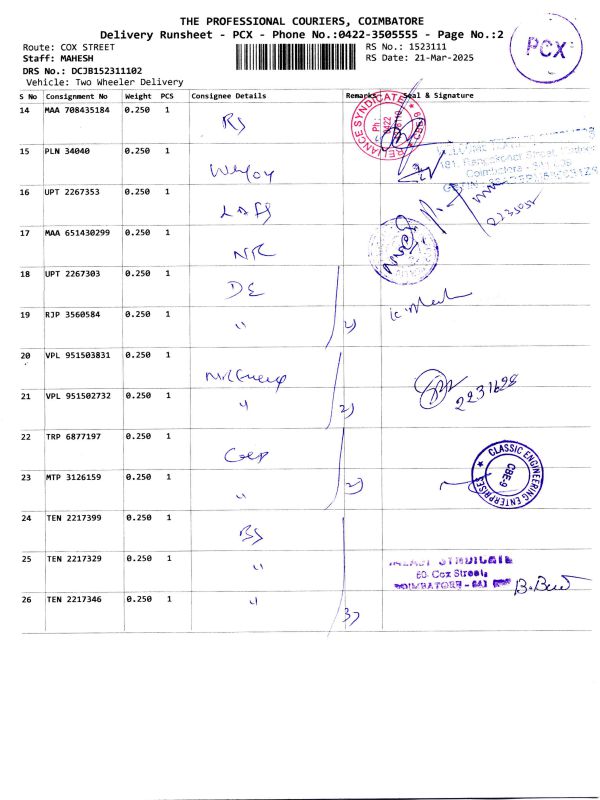 THE PROFESSIONAL COURIERS, COIMBATORE
Delivery Runsheet - PCX - Phone No.:0422-3505555 - Page No.:2
PCX
Route: COX STREET
RS No.: 1523111
Staff: MAHESH
RS Date: 21-Mar-2025
DRS No.: DCJB152311102
Vehicle: Two Wheeler Delivery
S No Consignment No Weight PCS Consignee Details Remarks Seal & Signature
14 MAA 708435184 0.250 1 RS
RELIANCE SYNDICATE
Ph: 0422
15 PLN 34040 0.250 1
181, Street,
Coimbatore
16 UPT 2267353 0.250 1
17 MAA 651430299 0.250 1 NR
18 UPT 2267303 0.250 1 DE
19 RJP 3560584 0.250 1 " 2)
20 VPL 951503831 0.250 1
21 VPL 951502732 0.250 1 " 2) 2231698
22 TRP 6877197 0.250 1
CLASSIC ENGINEERING ENTERPRISES
CBE-9
23 MTP 3126159 0.250 1 " 2)
24 TEN 2217399 0.250 1 BS
25 TEN 2217329 0.250 1 "
SYNDICATE
60, Cox Street,
COIMBATORE - 641
26 TEN 2217346 0.250 1 " 3)